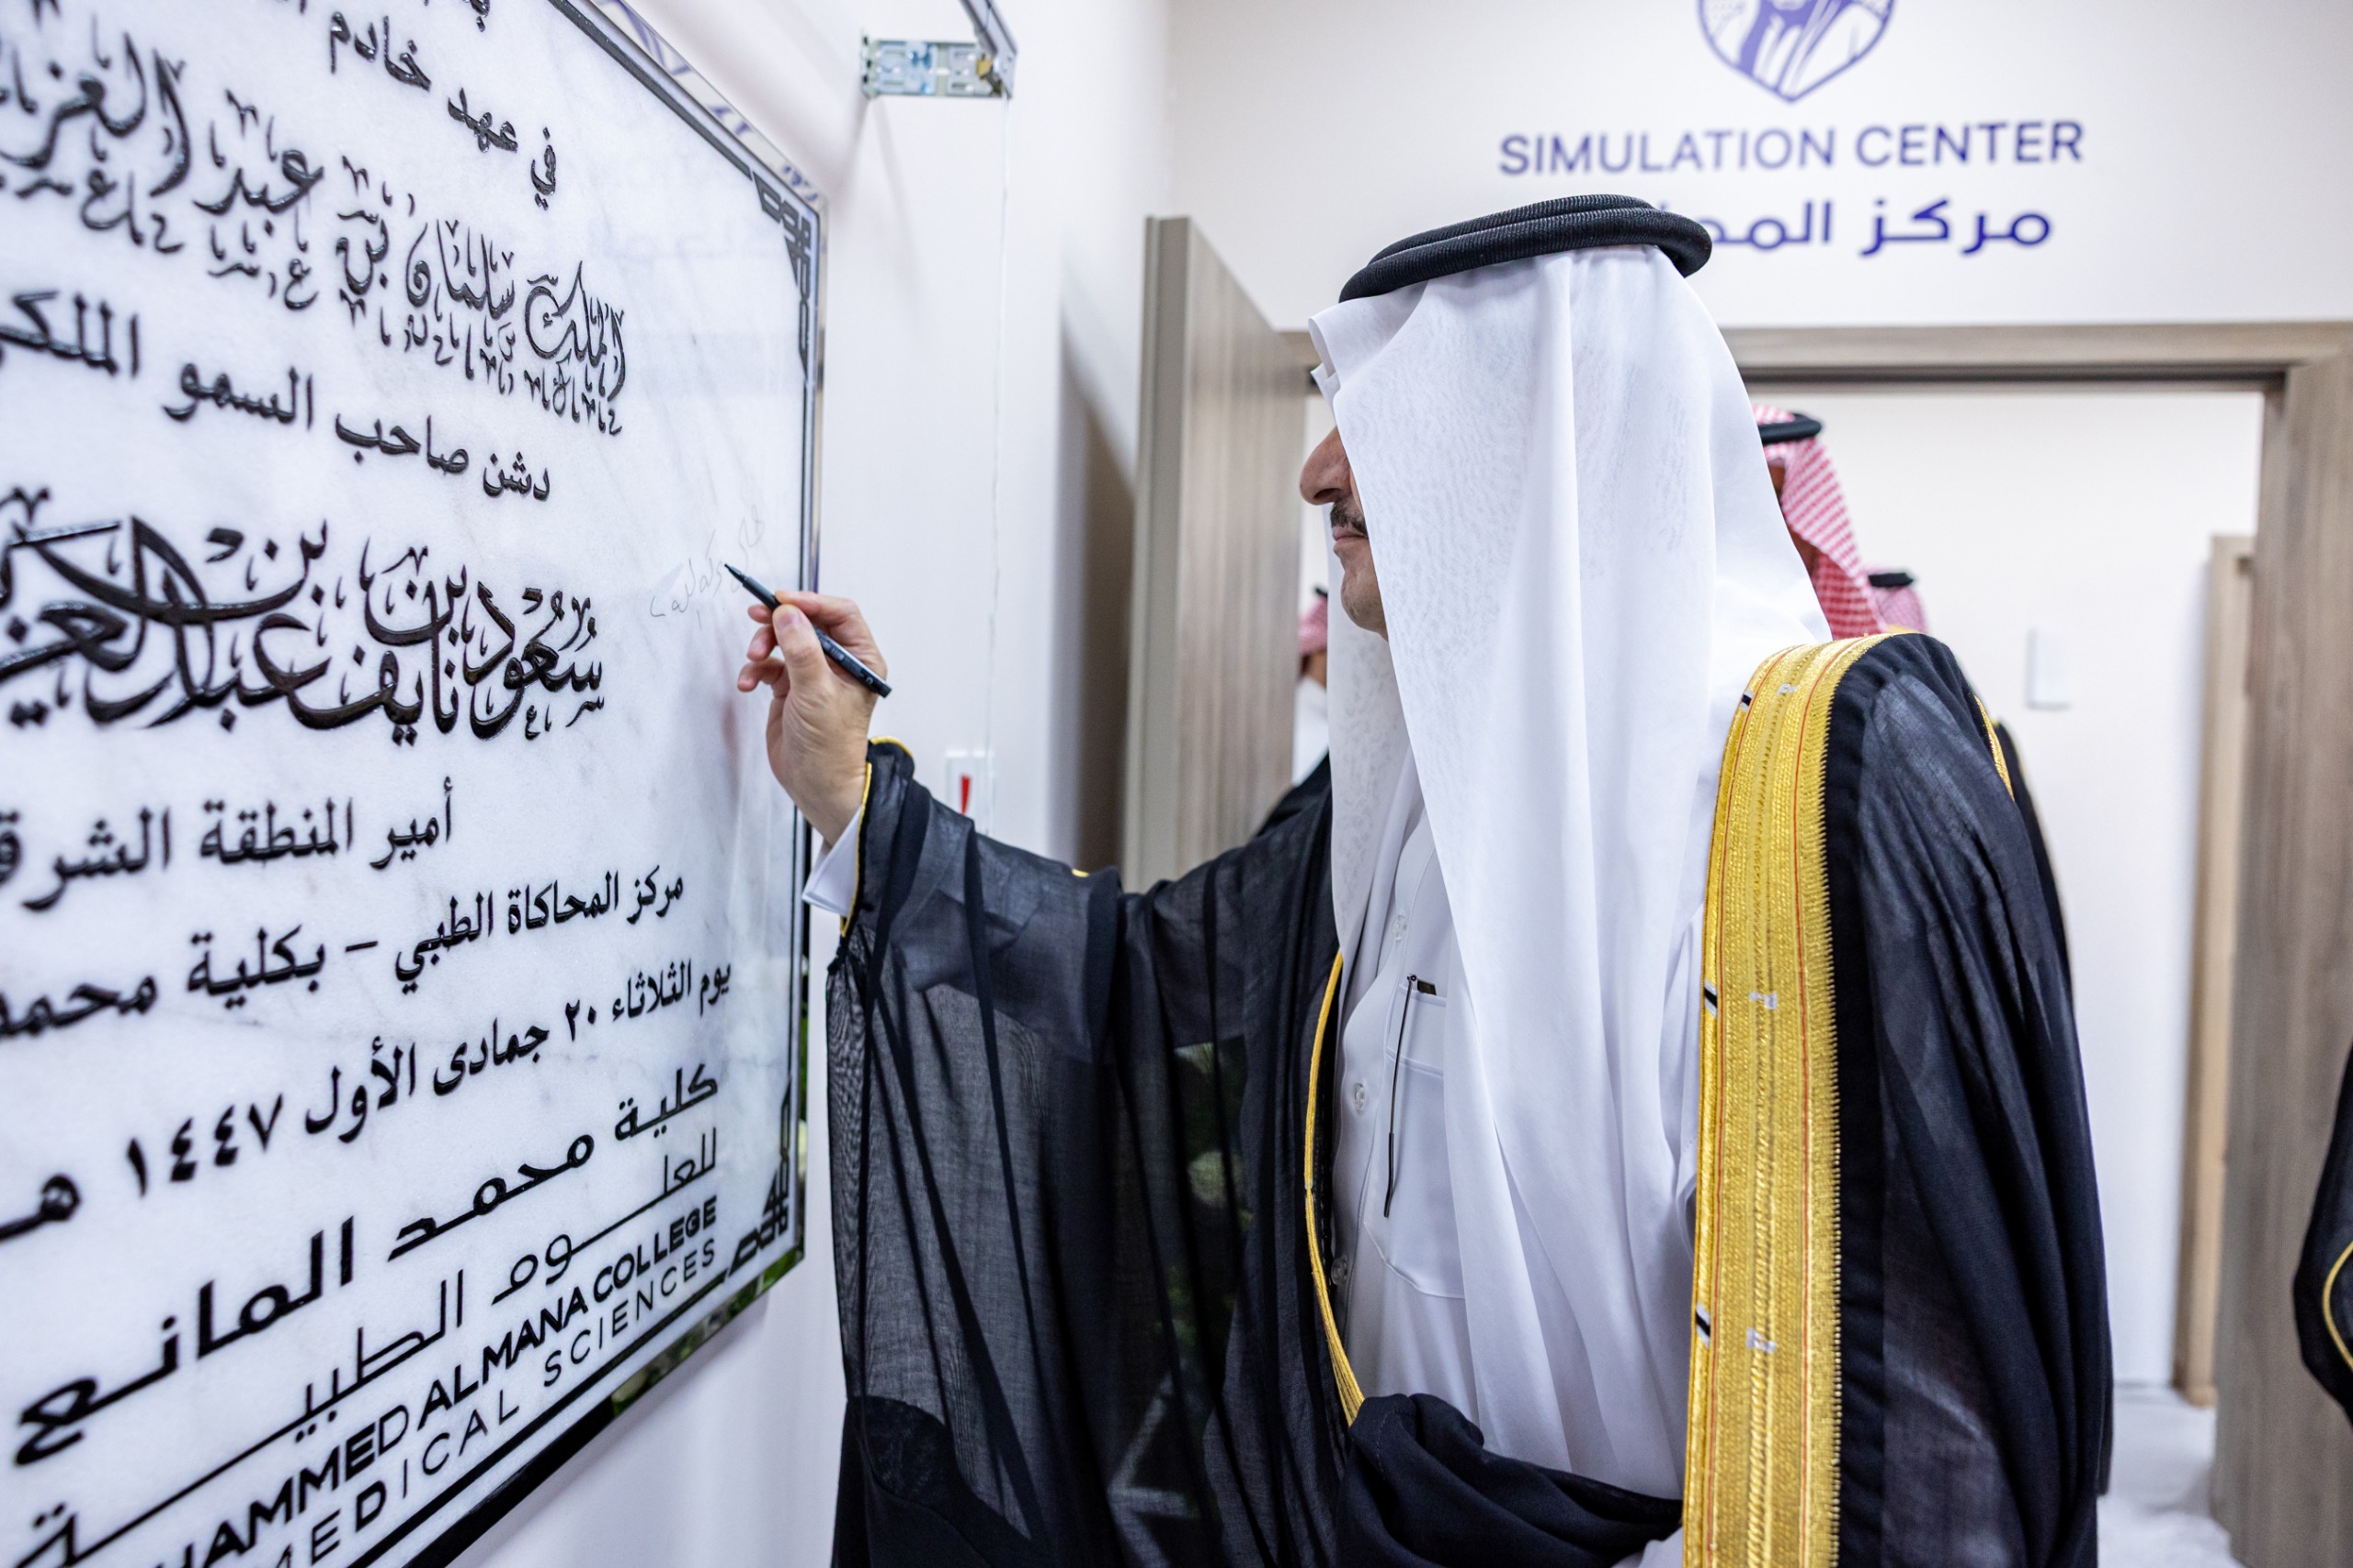 في عهد خادم
الملك سلمان بن عبد العز
دشن صاحب السمو الملك
سعود بن نايف بن عبد العز
أمير المنطقة الشرق
مركز المحاكاة الطبي - بكلية محمد
يوم الثلاثاء ٢٠ جمادى الأول ١٤٤٧ هـ
كلية محمد المانع
للعلوم الطبية
HAMMED ALMANA COLLEGE
MEDICAL SCIENCES
SIMULATION CENTER
مركز